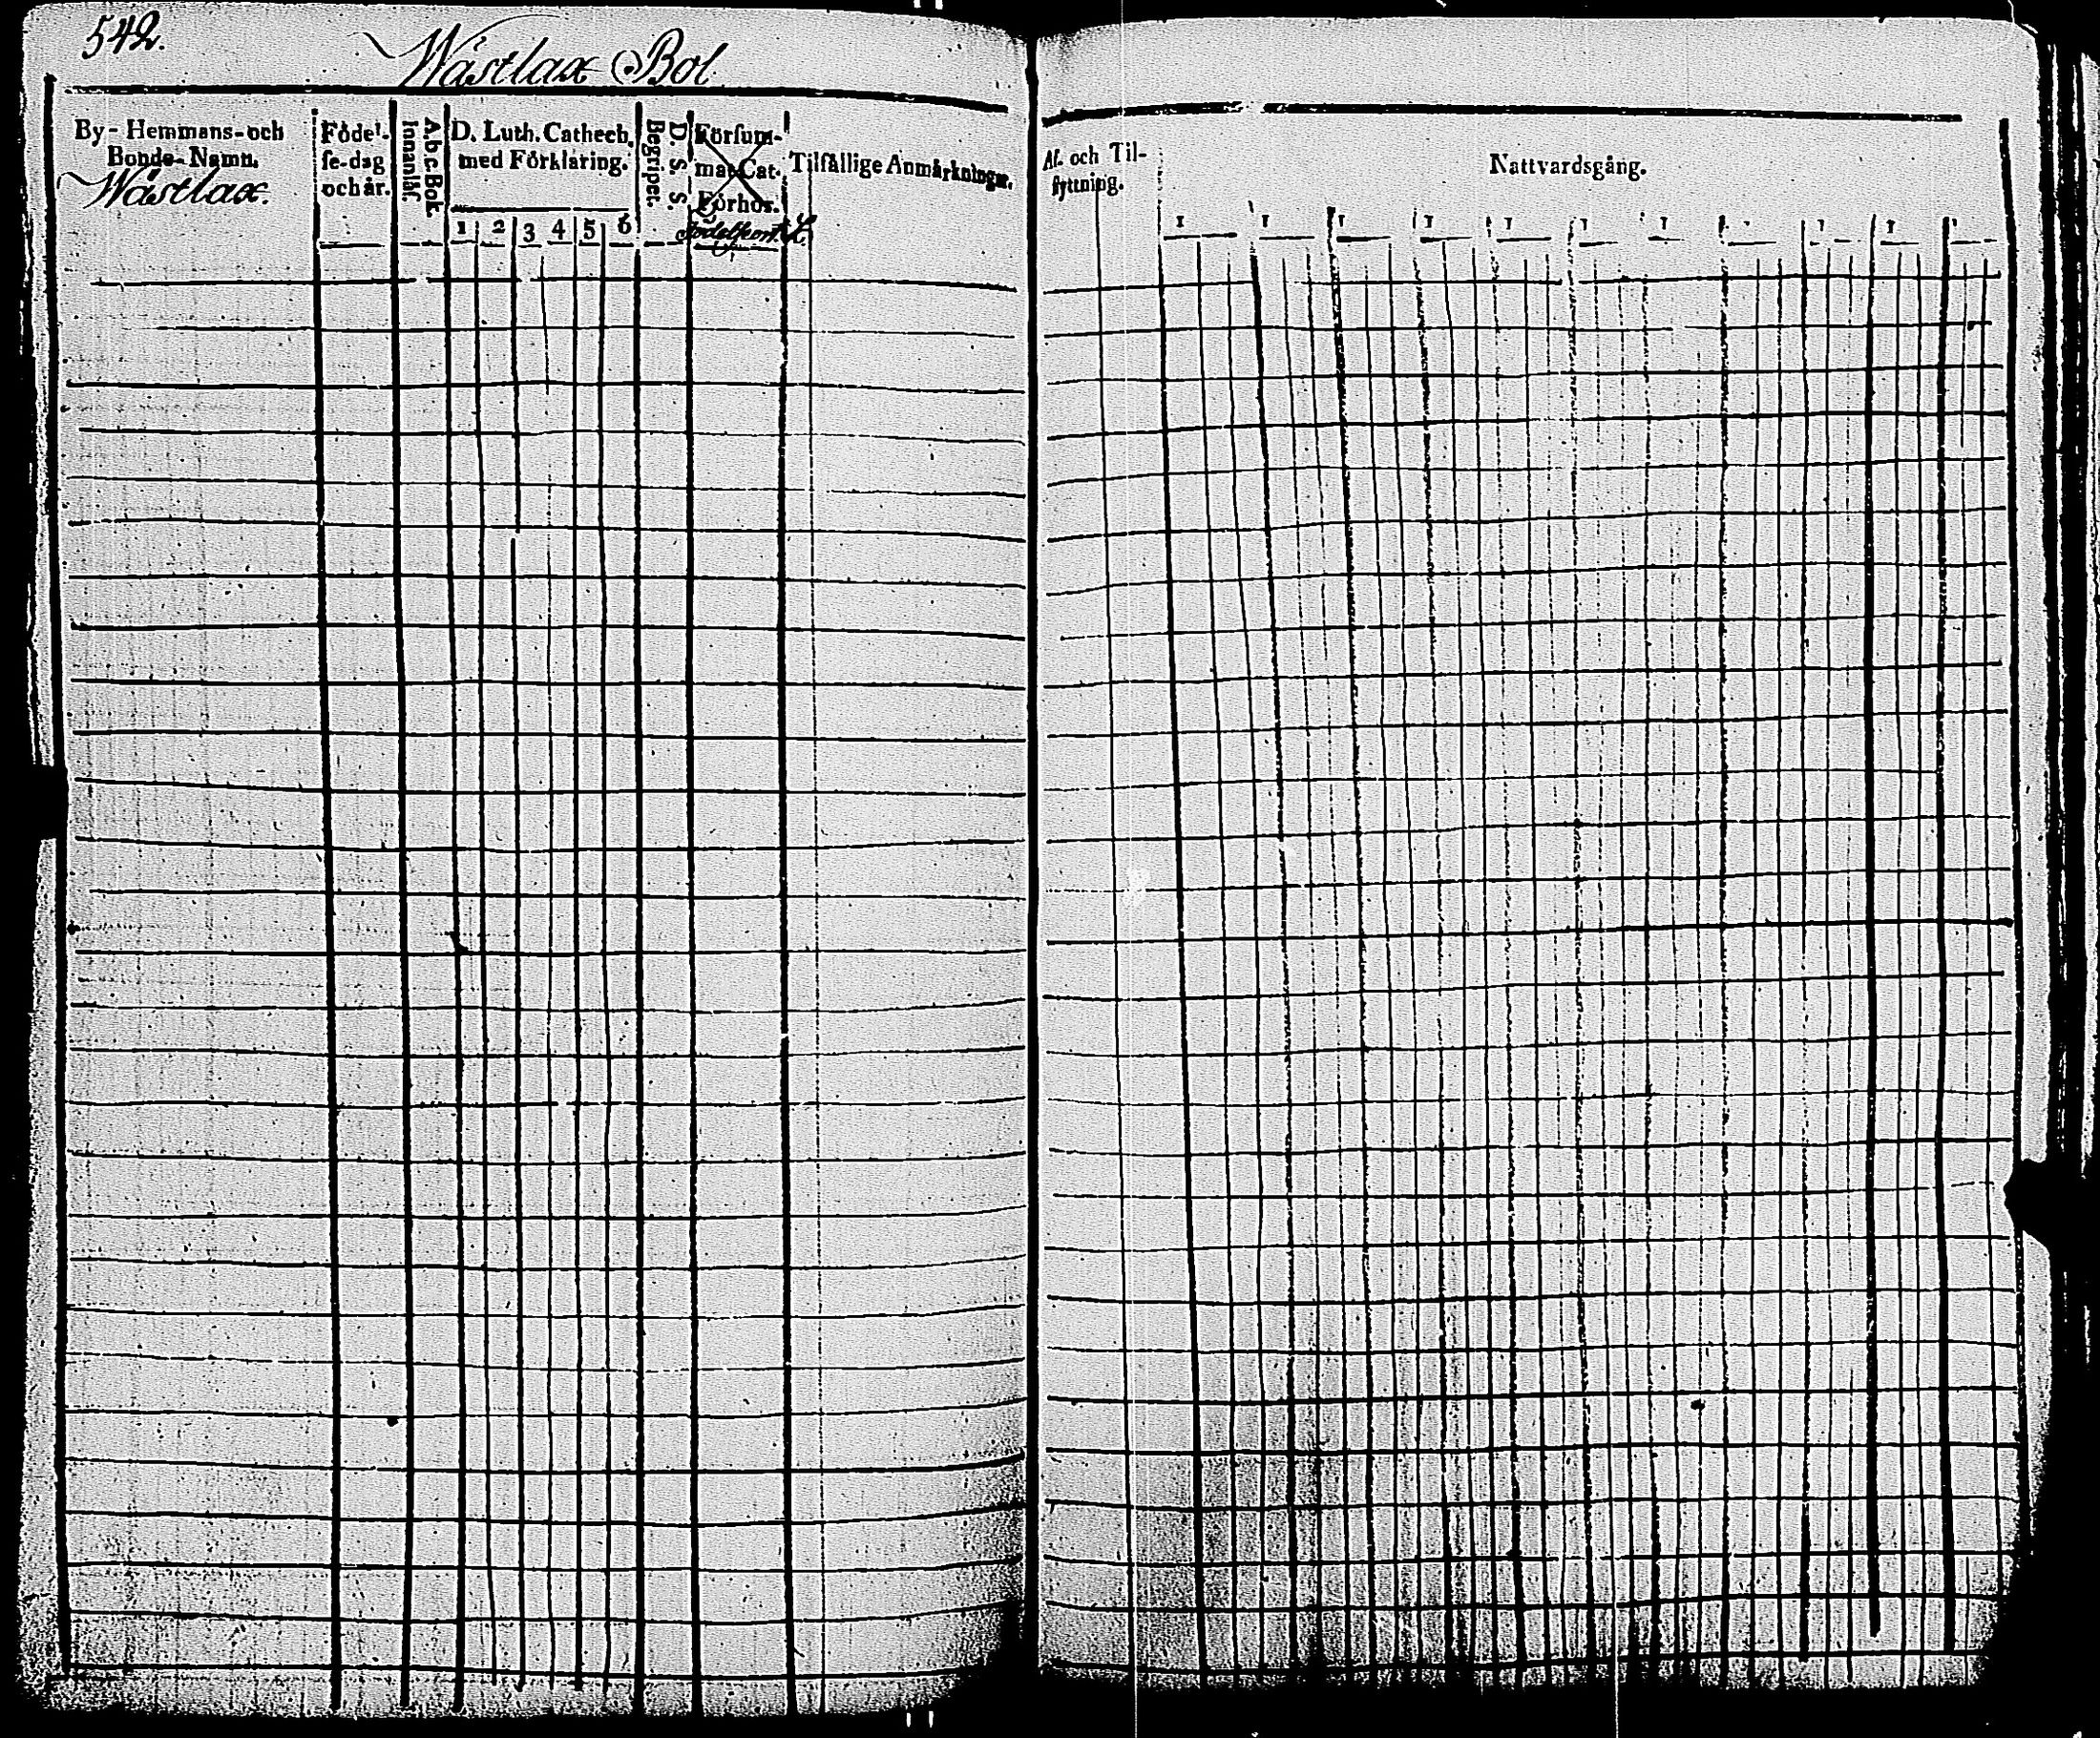 542.
Wästlax Bol
By- Hemmans- och
Bonde- Namn.
Wästlax.
Födel-
ſe-dag
och år.
Abc Bok
Innanläſ.
D. Luth. Cathech.
med Förklaring.
1 2 3 4 5 6
D. S. S.
Begripet.
Förſum-
mat Cat.
Förhör.
Tilfällige Anmärkningar.
Af- och Til-
flyttning.
Nattvardsgång.
1 1 1 1 1 1 1 1 1 1 1